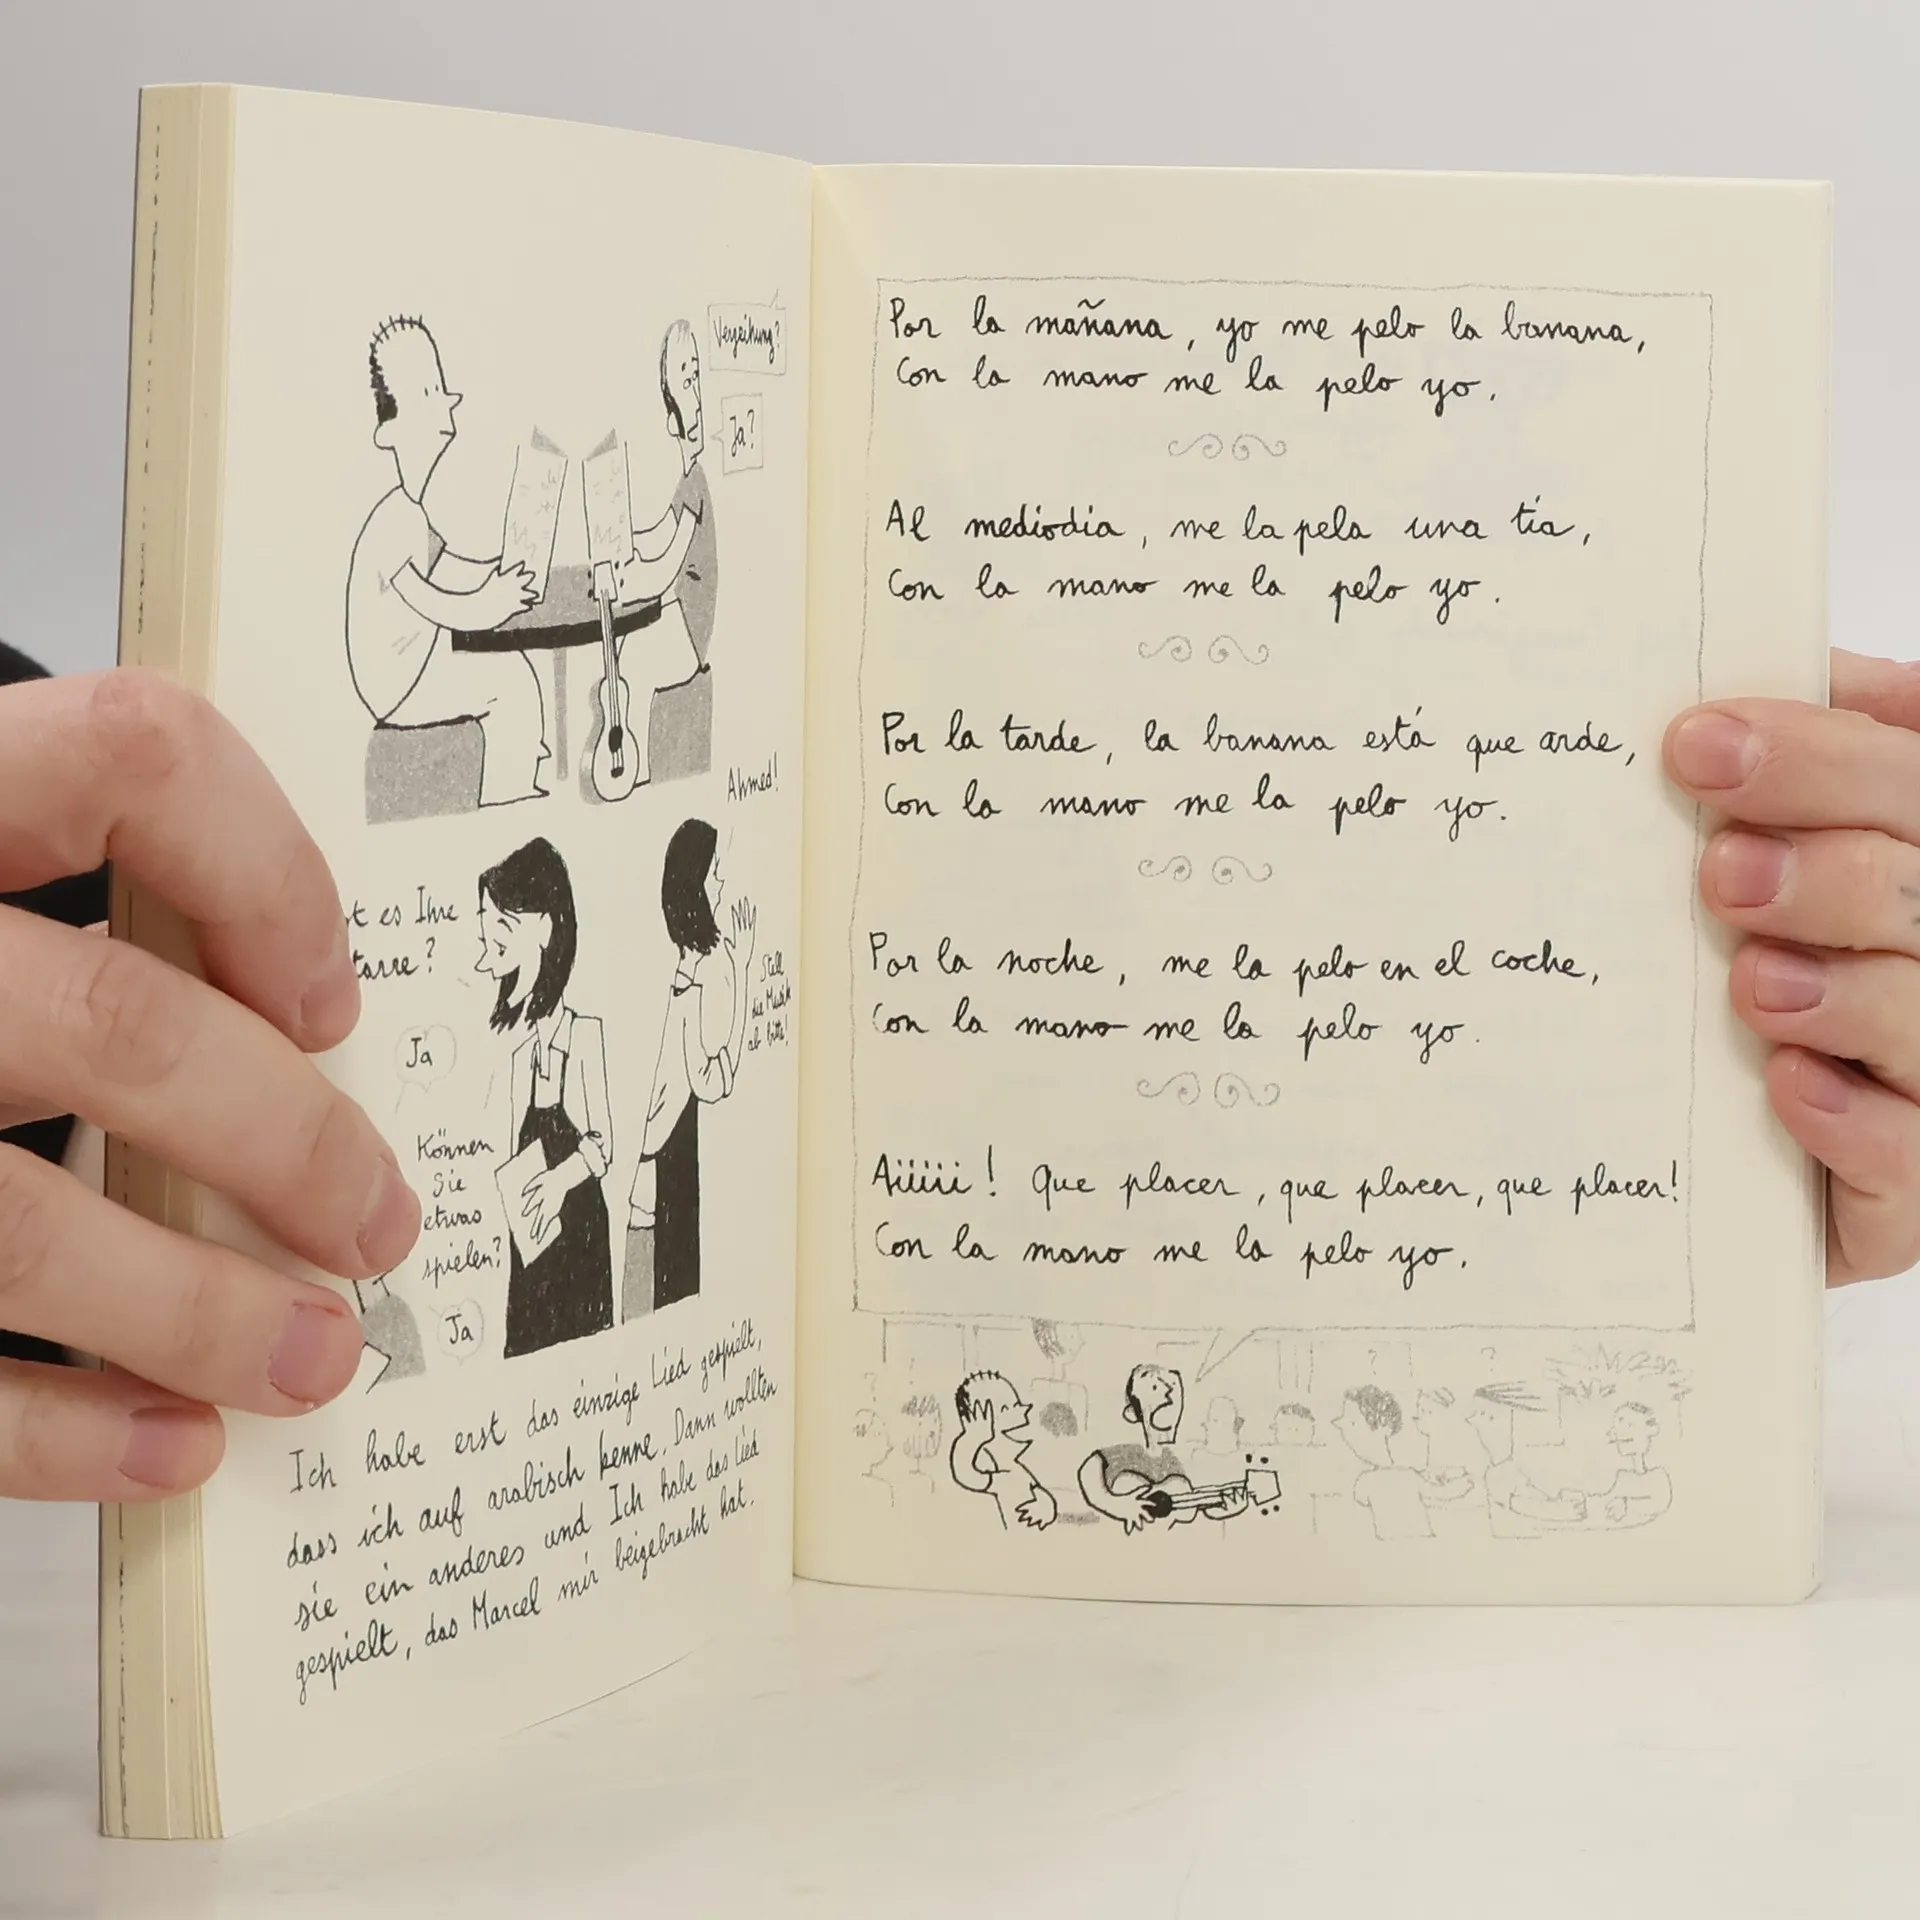 Verzeihung?
Ja?
Ahmed!
t es Ihre
tarre?
Stell
die Musik
ab bitte!
Ja
Können
Sie
etwas
spielen?
Ja
Ich habe erst das einzige Lied gespielt,
dass ich auf arabisch kenne. Dann wollten
sie ein anderes und Ich habe das Lied
gespielt, das Marcel mir beigebracht hat.
Por la mañana, yo me pelo la banana,
Con la mano me la pelo yo.
Al mediodia, me la pela una tía,
Con la mano me la pelo yo.
Por la tarde, la banana está que arde,
Con la mano me la pelo yo.
Por la noche, me la pelo en el coche,
Con la mano me la pelo yo.
Aiiiii! Que placer, que placer, que placer!
Con la mano me la pelo yo.
?
?
?